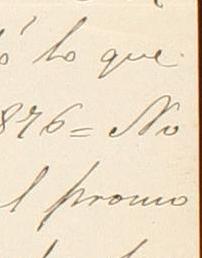 ó lo que
876= No
l promo